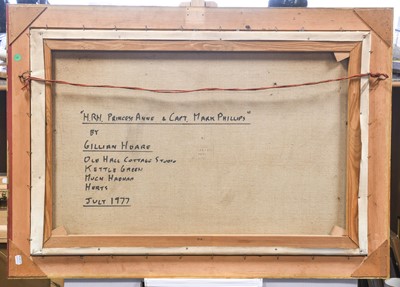 "H.R.H. PRINCESS ANNE & CAPT. MARK PHILLIPS"
BY
GILLIAN HOARE
OLD HALL COTTAGE STUDIO
KETTLE GREEN
MUCH HADHAM
HERTS
JULY 1977